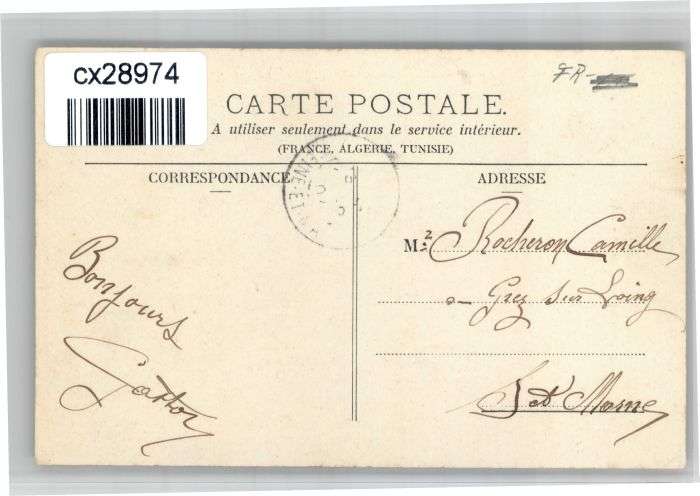 cx28974
FR-
CARTE POSTALE.
A utiliser seulement dans le service intérieur.
(FRANCE, ALGERIE, TUNISIE)
CORRESPONDANCE
ADRESSE
M.r Rocheron Camille
a Grez sur Loing
S et Marne
Bonjours
Gaston